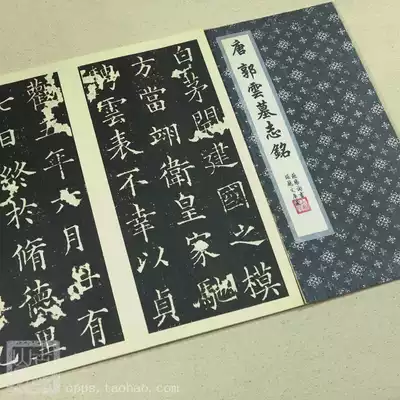 唐 郭雲墓志銘
白茅開建國之模
方當翊衛皇家馳
騁雲表不幸以貞
觀五年六月廿有
七日終於脩德里
opps.taobao.com